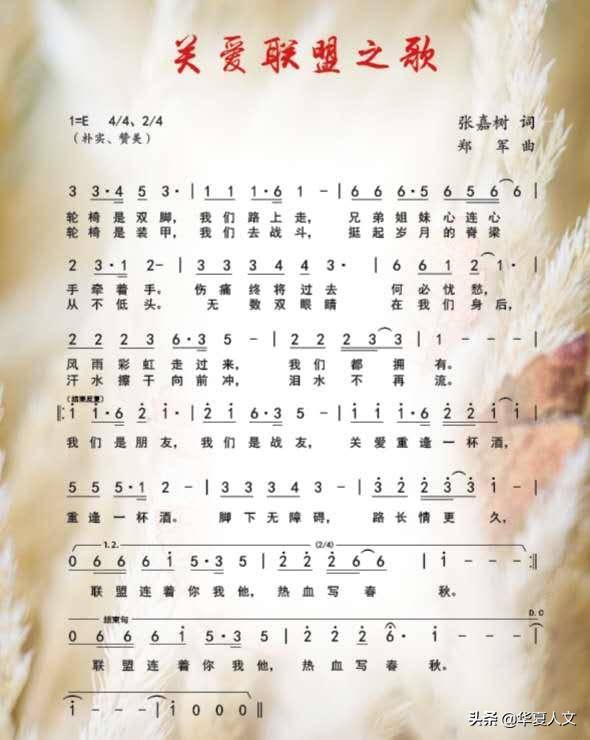 关爱联盟之歌
1=E 4/4、2/4
张嘉树 词
（朴实、赞美）
郑 军 曲
3 3·4 5 3· | 1 1 1·6 1 - | 6 6 6·5 6 5 6 |
轮椅是双脚，我们路上走， 兄弟姐妹心连心
轮椅是装甲，我们去战斗， 挺起岁月的脊梁
2 3·1 2- | 3 3 3 4 3 3· | 6 6 1 2 1· |
手牵着手。 伤痛终将过去 何必忧愁，
从不低头。 无数双眼睛 在我们身后，
2 2 2 3 6·3 5 - | 2 2 2 3 3· | 1 - - - |
风雨彩虹走过来， 我们都拥有。
汗水擦干向前冲， 泪水不再流。
（结束反复）
‖: 1 1·6 2 1· | 2 1 6·3 5 - | 6 6 1·6 2 2 1 |
我们是朋友，我们是战友， 关爱重逢一杯酒，
5 5 5·1 2 - | 3 3 3 4 3 - | 3 2 2 3 3 1 - |
重逢一杯酒。 脚下无障碍， 路长情更久，
1. 2. (2/4)
0 6 6 6 1 5·3 5 | 2 2 2 6 6 | 1 - :‖
联盟连着你我他，热血写春 秋。
结束句 D.C
0 6 6 6 1 5·3 5 | 2 2 2 2 6· 1 - |
联盟连着你我他，热血写春 秋。
1 - - - | 1 0 0 0 ‖
头条 @华夏人文